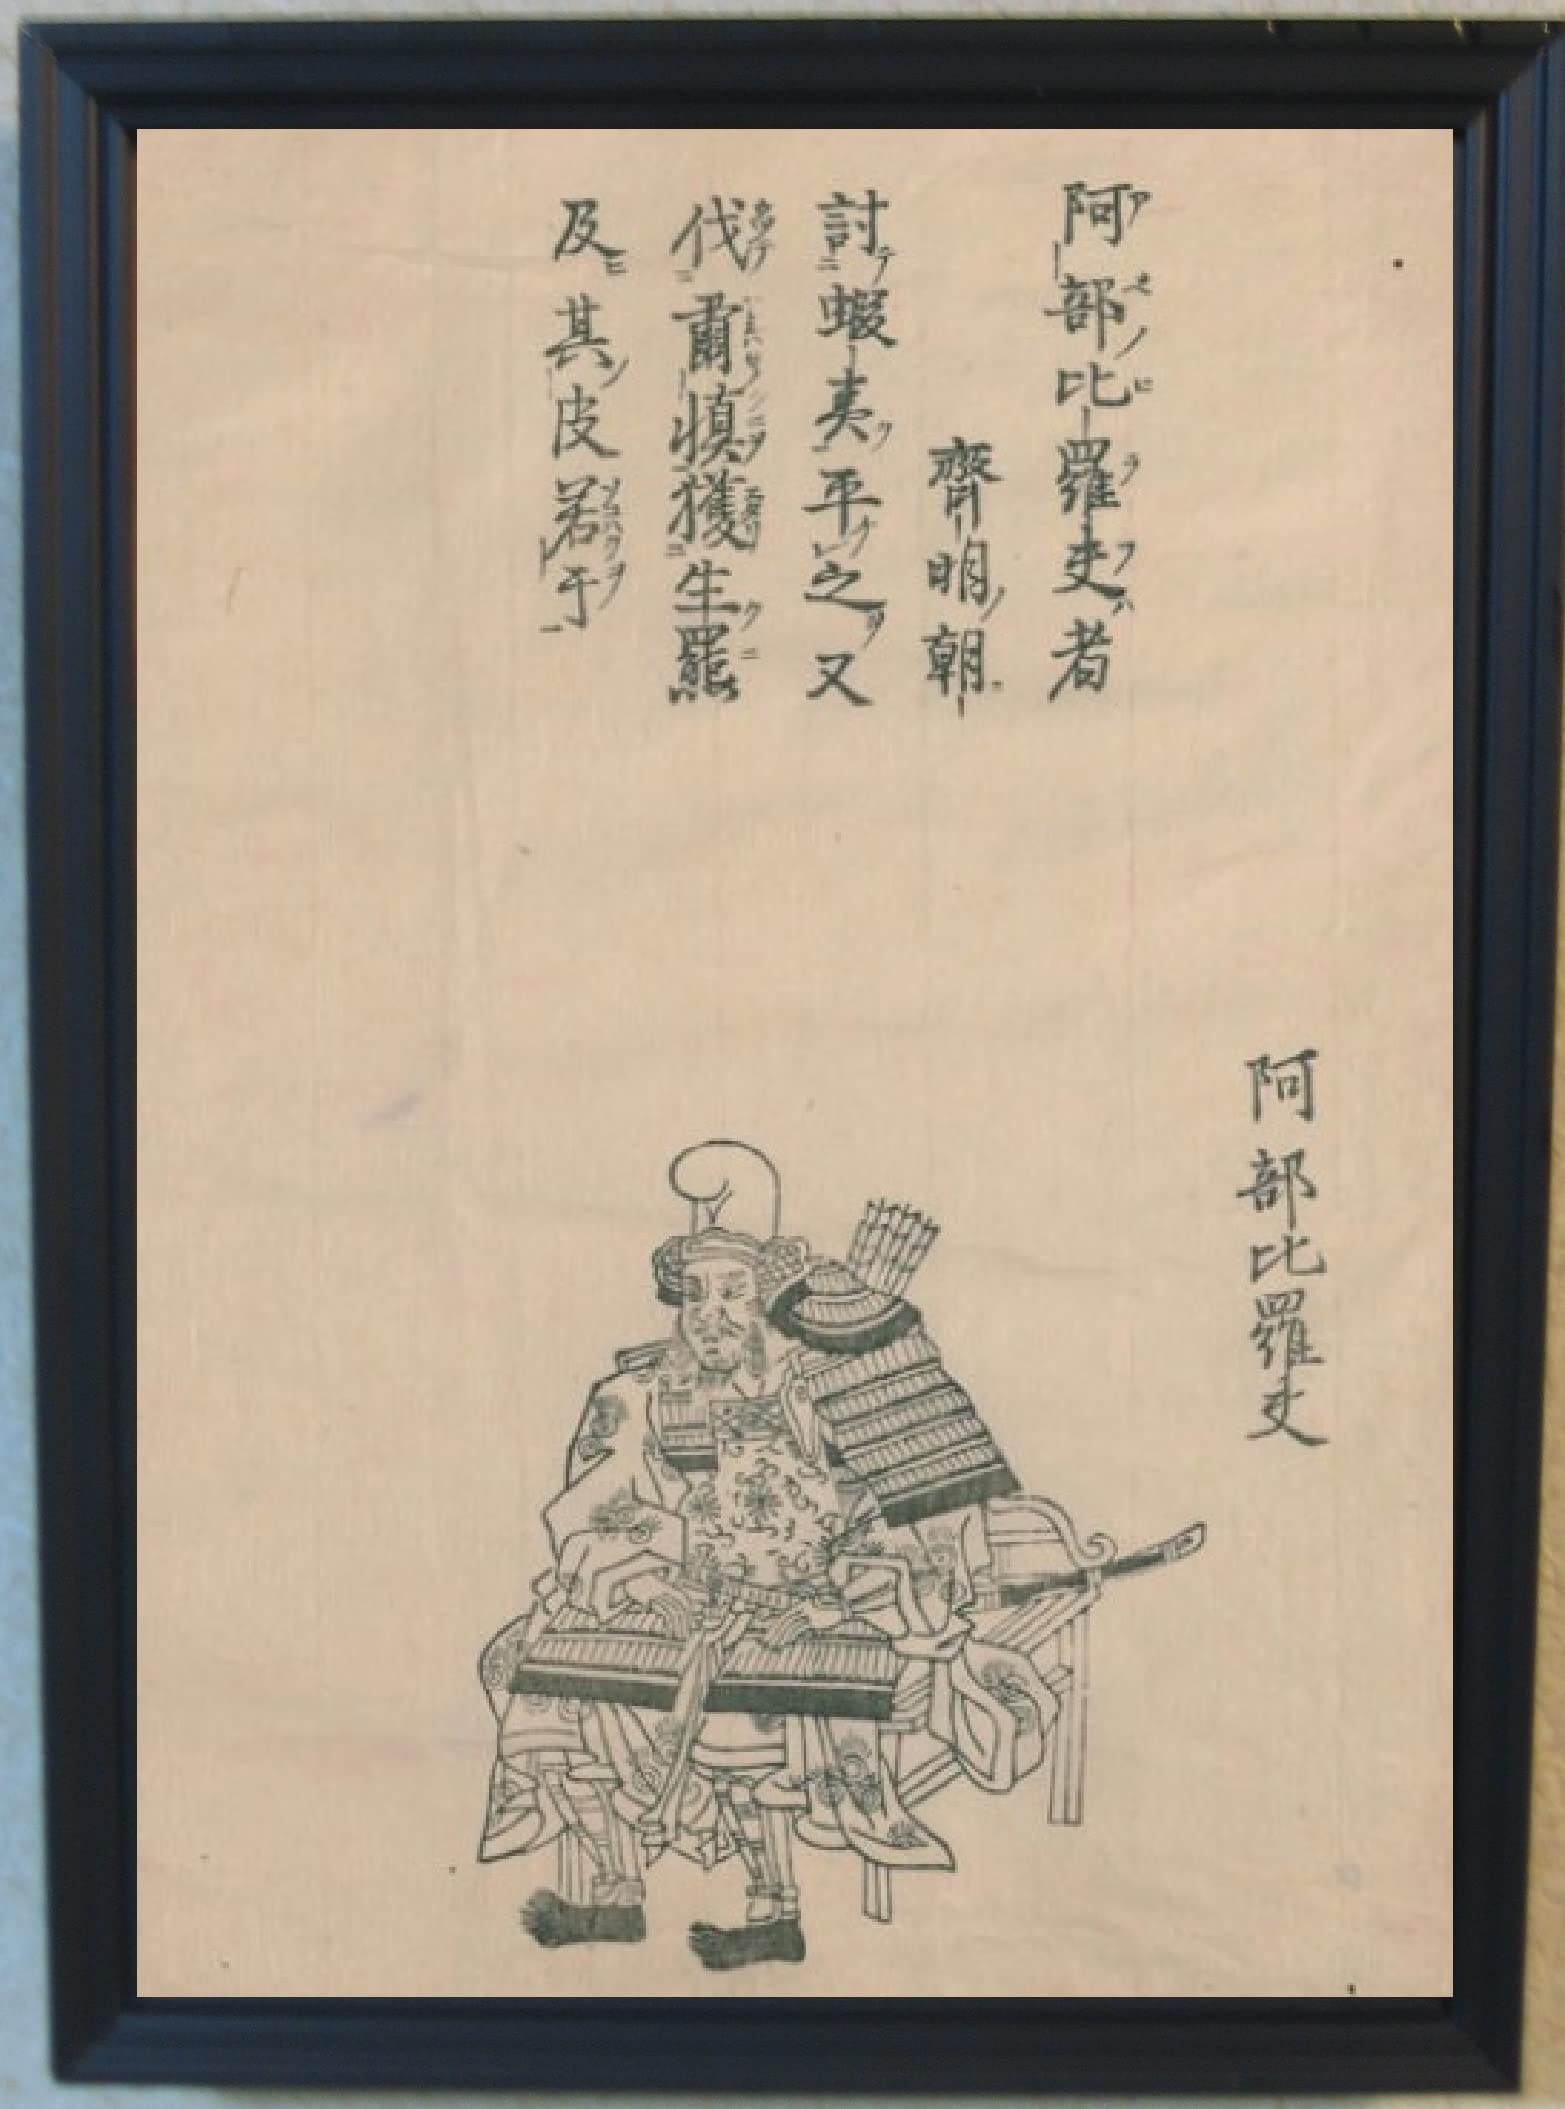 阿部比羅夫
阿部比羅夫者
齊明朝
討蝦夷平之又
伐肅慎獲生羆
及其皮若干